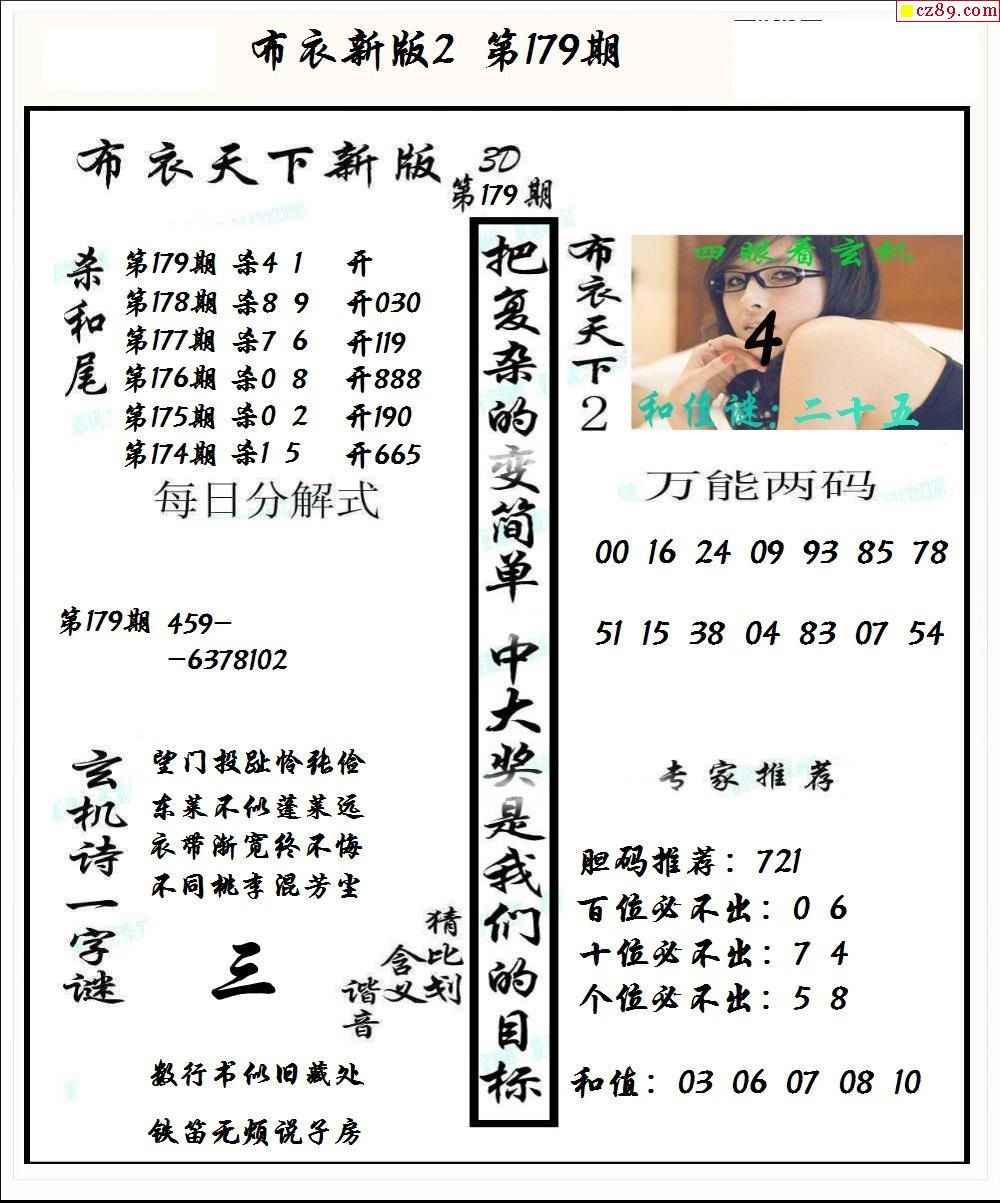 cz89.com
布衣新版2 第179期
布衣天下新版 3D
第179期
杀和尾
第179期 杀4 1 开
第178期 杀8 9 开030
第177期 杀7 6 开119
第176期 杀0 8 开888
第175期 杀0 2 开190
第174期 杀1 5 开665
每日分解式
第179期 459-
-6378102
玄机诗一字谜
望门投趾怜张俭
东莱不似蓬莱远
衣带渐宽终不悔
不同桃李混芳尘
三
猜比划
含义
谐音
数行书似旧藏处
铁笛无烦说子房
把复杂的变简单 中大奖是我们的目标
布衣天下2
四眼看玄机
4
和值谜:二十五
万能两码
00 16 24 09 93 85 78
51 15 38 04 83 07 54
专家推荐
胆码推荐：721
百位必不出：0 6
十位必不出：7 4
个位必不出：5 8
和值：03 06 07 08 10